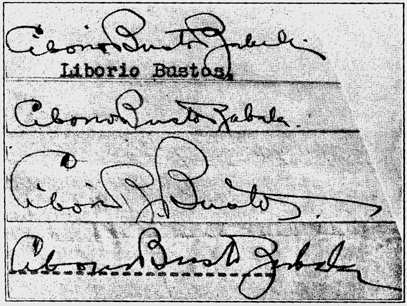 Liborio Busto Zabala
Liborio Bustos.
Liborio Busto Zabala.
Libório B. Bustos.
Liborio Busto Zabala